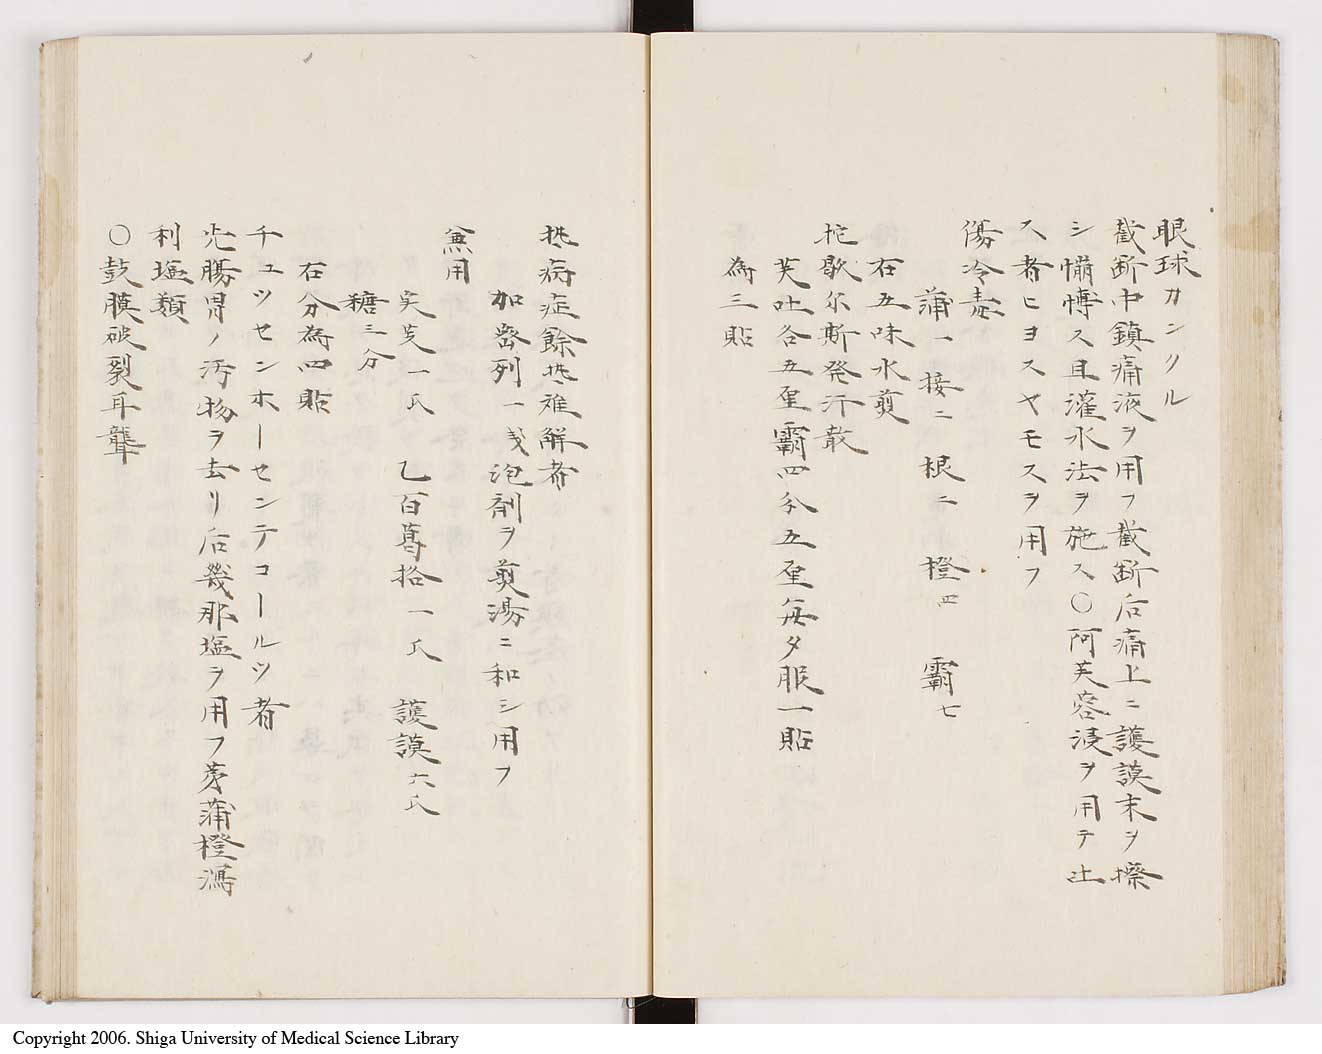 眼球カンクル
截断中鎮痛液ヲ用フ截断后痛上ニ護謨末ヲ擦
シ慵慱ス且灌水法ヲ施ス〇阿芙蓉浸ヲ用テ止
ス者ヒヨスヤモスヲ用フ
傷冷毒
蒲一接二根二橙四覇七
右五味水煎
挓歇尓斯発汗散
芙吐各五厘覇四分五厘每夕服一貼
為三貼
热病症餘热难解者
加密列一戋泡剤ヲ煎湯ニ和シ用フ
兼用
芙一氏乙百葛拾一氏護謨六氏
糖三分
右分為四貼
チュツセンホーセンテコールツ者
先腸胃ノ汚物ヲ去リ后幾那塩ヲ用フ蒲橙
利塩類
〇鼓膜破裂耳聾
Copyright 2006. Shiga University of Medical Science Library